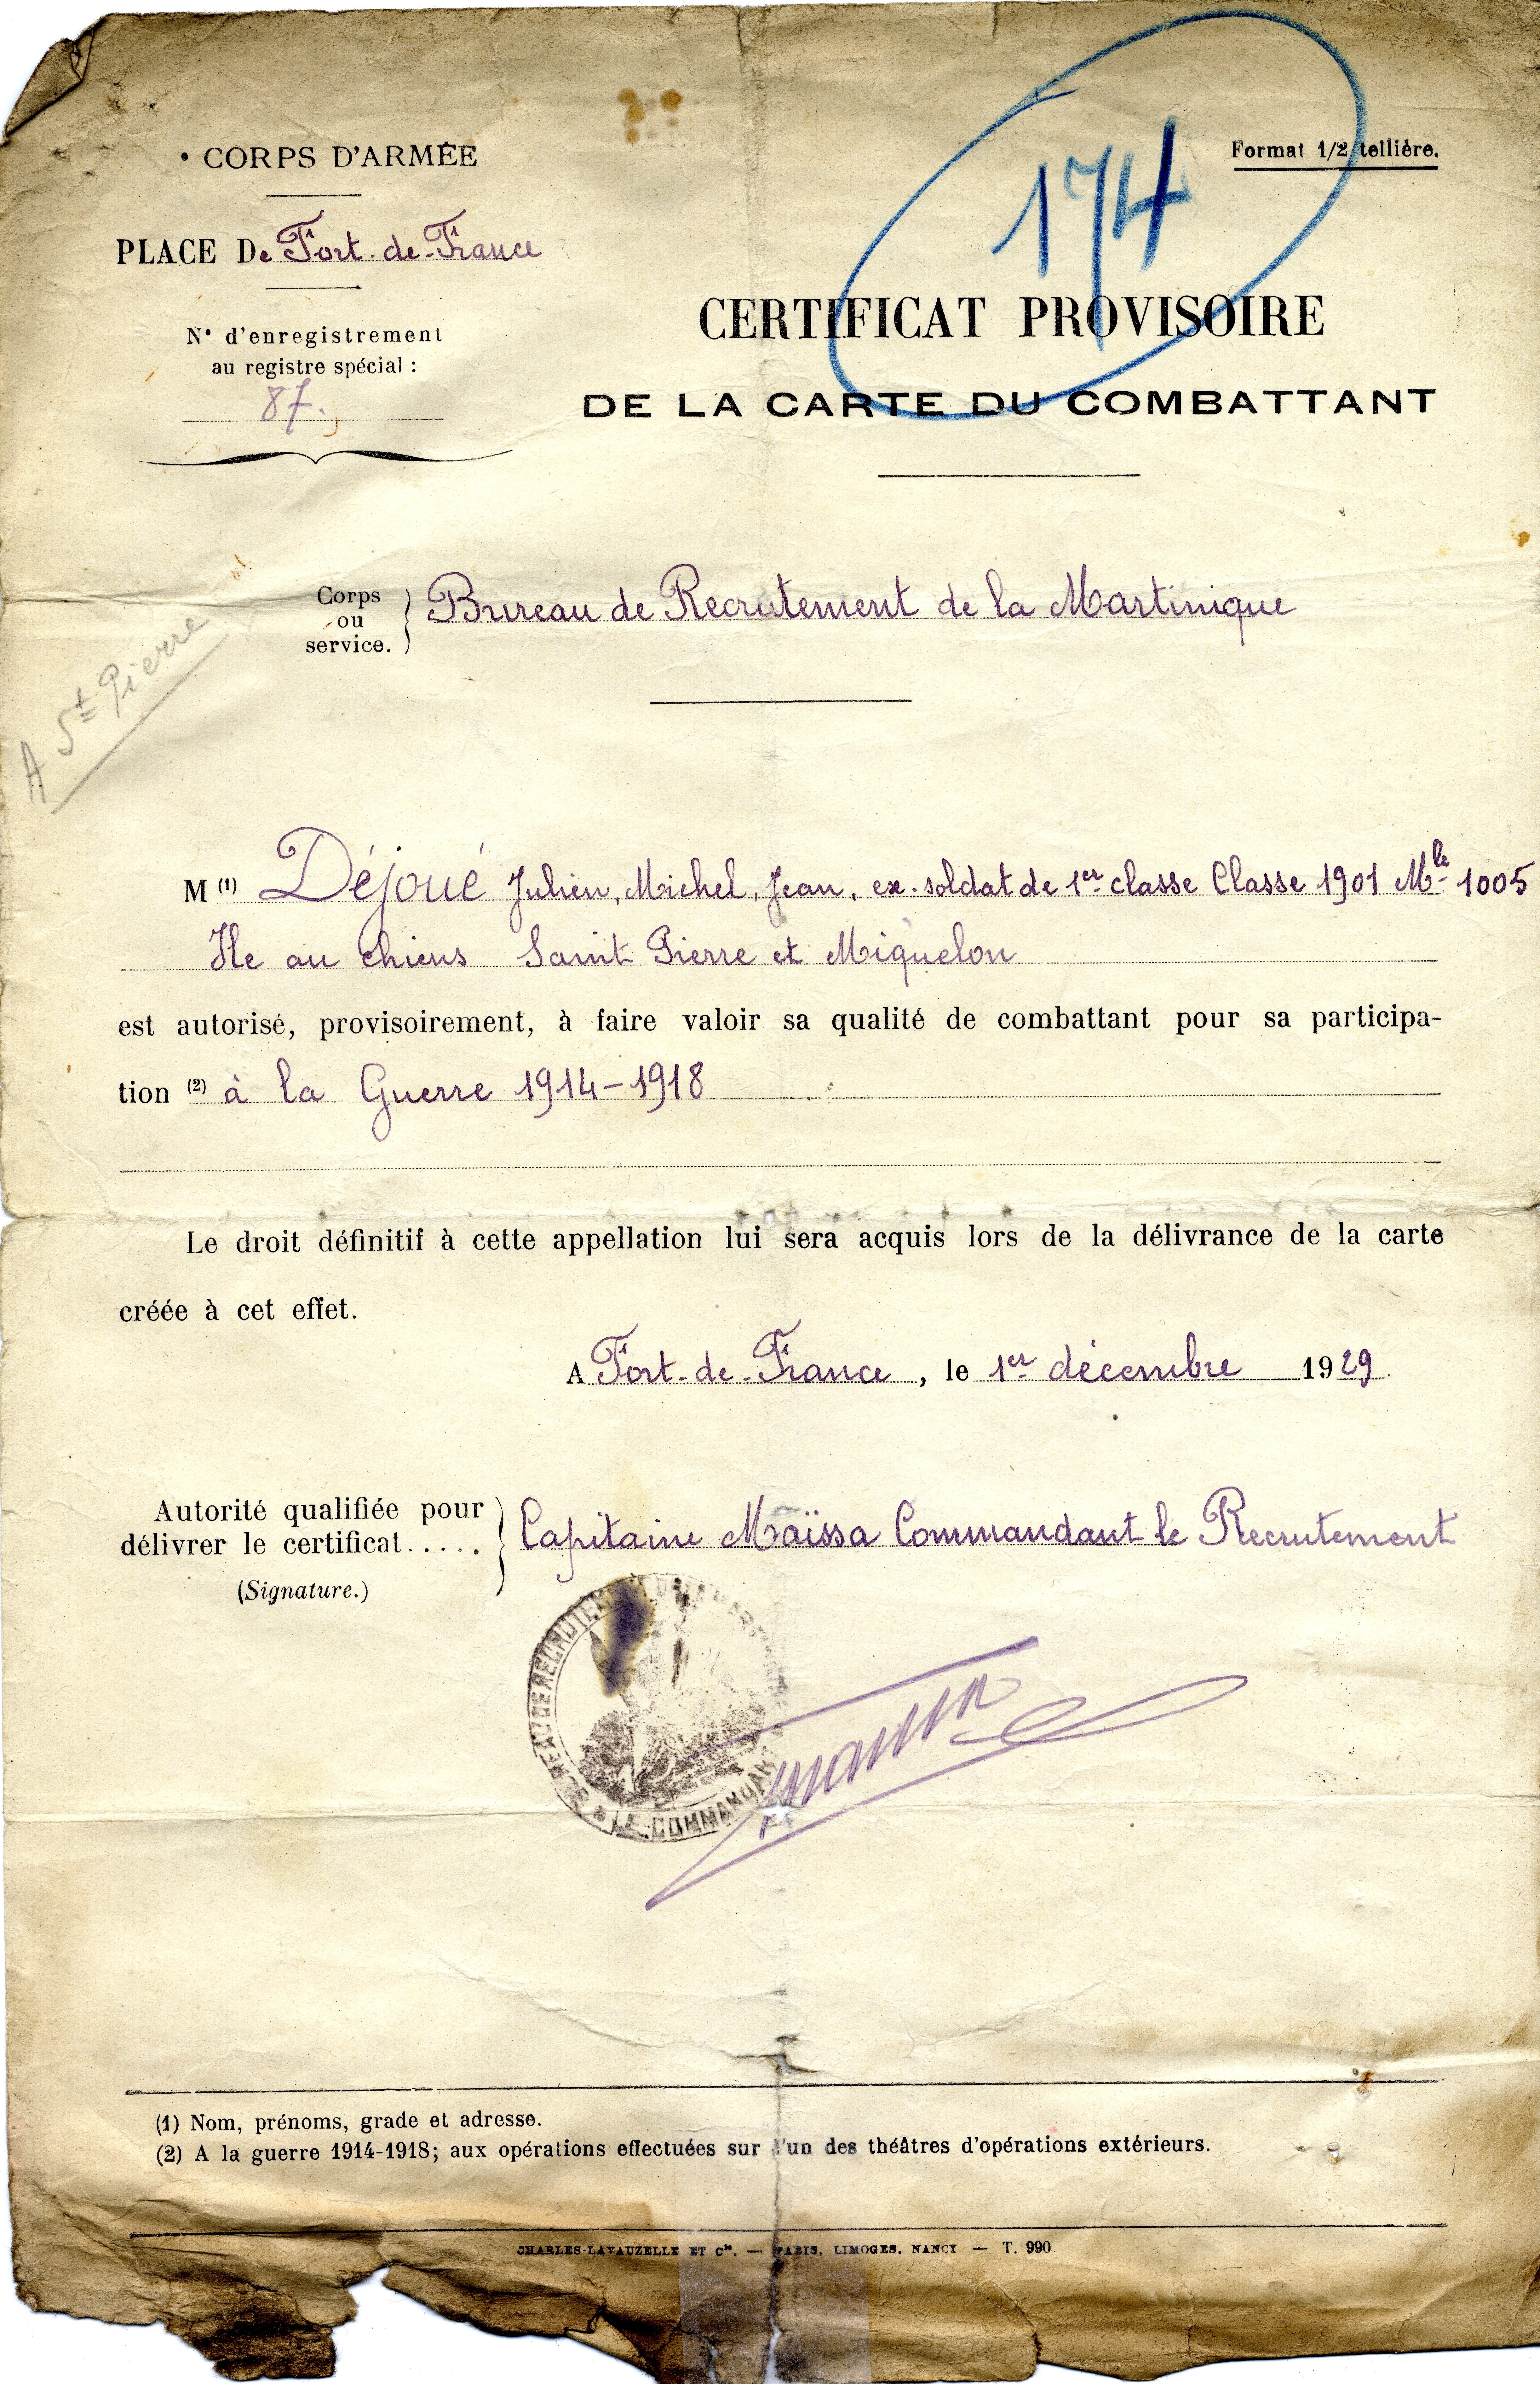 • CORPS D'ARMÉE
PLACE De Fort-de-France
N° d'enregistrement
au registre spécial :
87.
174
Format 1/2 tellière.
CERTIFICAT PROVISOIRE
DE LA CARTE DU COMBATTANT
Corps
ou
service.
Bureau de Recrutement de la Martinique
A St Pierre
M (1) Déjoué Julien, Michel, Jean, ex-soldat de 1er classe Classe 1901 Mle 1005
Ile au chiens Saint Pierre et Miquelon
est autorisé, provisoirement, à faire valoir sa qualité de combattant pour sa participa-
tion (2) à la Guerre 1914-1918
Le droit définitif à cette appellation lui sera acquis lors de la délivrance de la carte
créée à cet effet.
A Fort-de-France, le 1er décembre 1929.
Autorité qualifiée pour
délivrer le certificat.....
(Signature.)
Capitaine Maïssa Commandant le Recrutement
LE COMMANDANT
(1) Nom, prénoms, grade et adresse.
(2) A la guerre 1914-1918; aux opérations effectuées sur l'un des théâtres d'opérations extérieurs.
CHARLES-LAVAUZELLE ET Cie. — PARIS, LIMOGES, NANCY — T. 990.